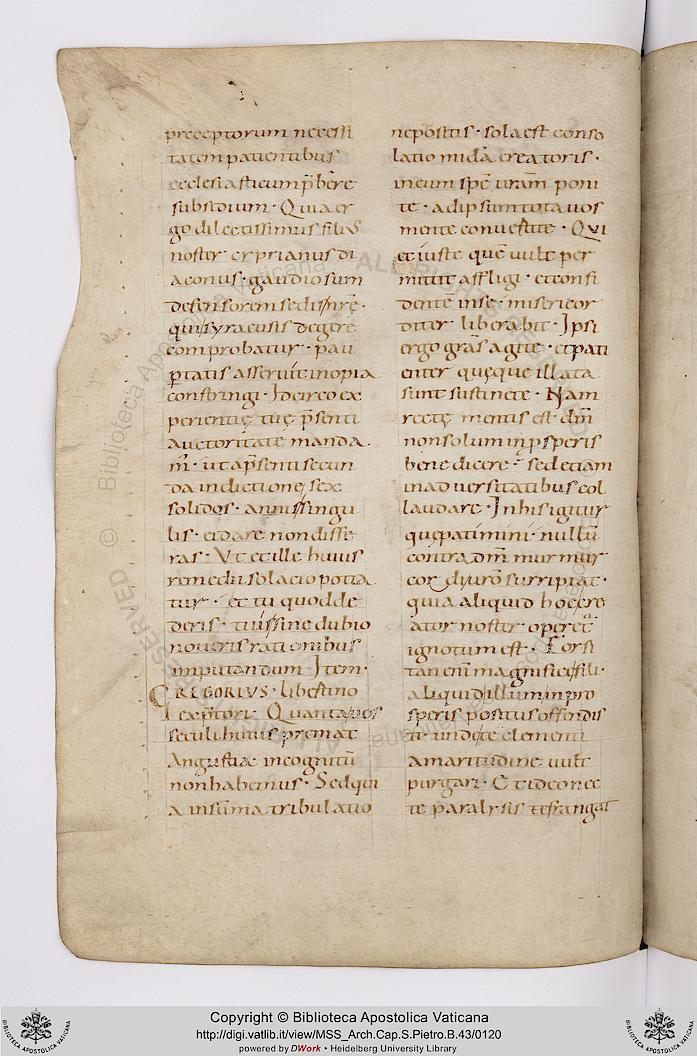 preceptorum necessi
tatem patientibus
ecclesiasticum p̄bere
subsidium · Quia er
go dilectissimus filius
noster cyprianus di
aconus · gaudiosum
defensorem sedis nrę̄ ·
qui syracusis degere
comprobatur · pau
ꝑtatis asseruit inopia
constringi · Idcirco ex
perientię tuę p̄senti
auctoritate manda
m̄ · ut a p̄senti secun
da indictione sex
solidos · annis singu
lis · ei dare non diffe
ras · Ut et ille huius
remedii solacio potia
tur · et tu quod de
deris · tuis sine dubio
noveris rationibus
imputandum · Item ·
GREGORIUS · libertino
exp̄tori · Quanta vos
seculi huius premat
Angustiae incognitū
non habemus · Sed qui
a in sūma tribulatio
ne positis · sola est conso
latio mīdā creatoris ·
in eum spē urām poni
te · ad ipsum tota vos
mente convertite · Qui
et iuste quē vult per
mittit affligi · et confi
dente in se · misericor
diter liberabit · Ipsi
ergo grās agite · et pati
enter quęque illata
sunt sustinete · Nam
rectę mentis est · dm̄
non solum in ꝓsperis
benedicere · sed etiam
in adversitatibus col
laudare · In his igitur
quę patimini · nullū
contra dm̄ murmur
cor surripiat ·
quia aliquid hoc cre
ator noster operet̄
ignotum est · Forsi
tan enī magnifice fili ·
aliquid illum in pro
speris positus offendis
ti · unde te clementi
amaritudine vult
purgari · Et ideo nec
te paralysis te frangat
Copyright © Biblioteca Apostolica Vaticana
http://digi.vatlib.it/view/MSS_Arch.Cap.S.Pietro.B.43/0120
powered by DWork • Heidelberg University Library